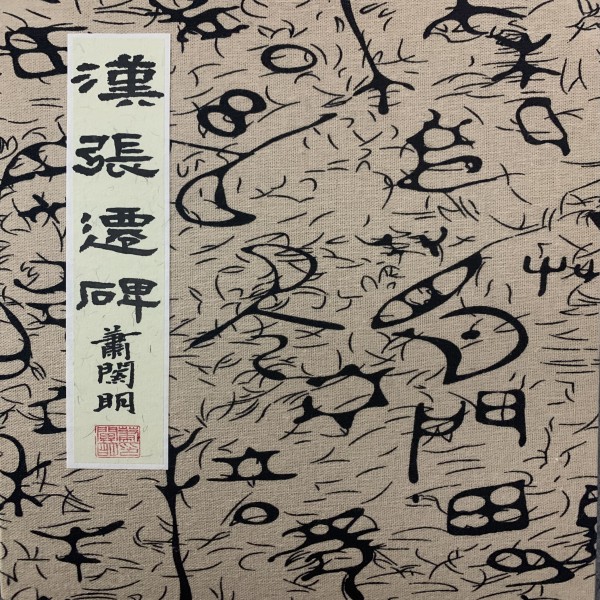 漢張遷碑
蕭関明